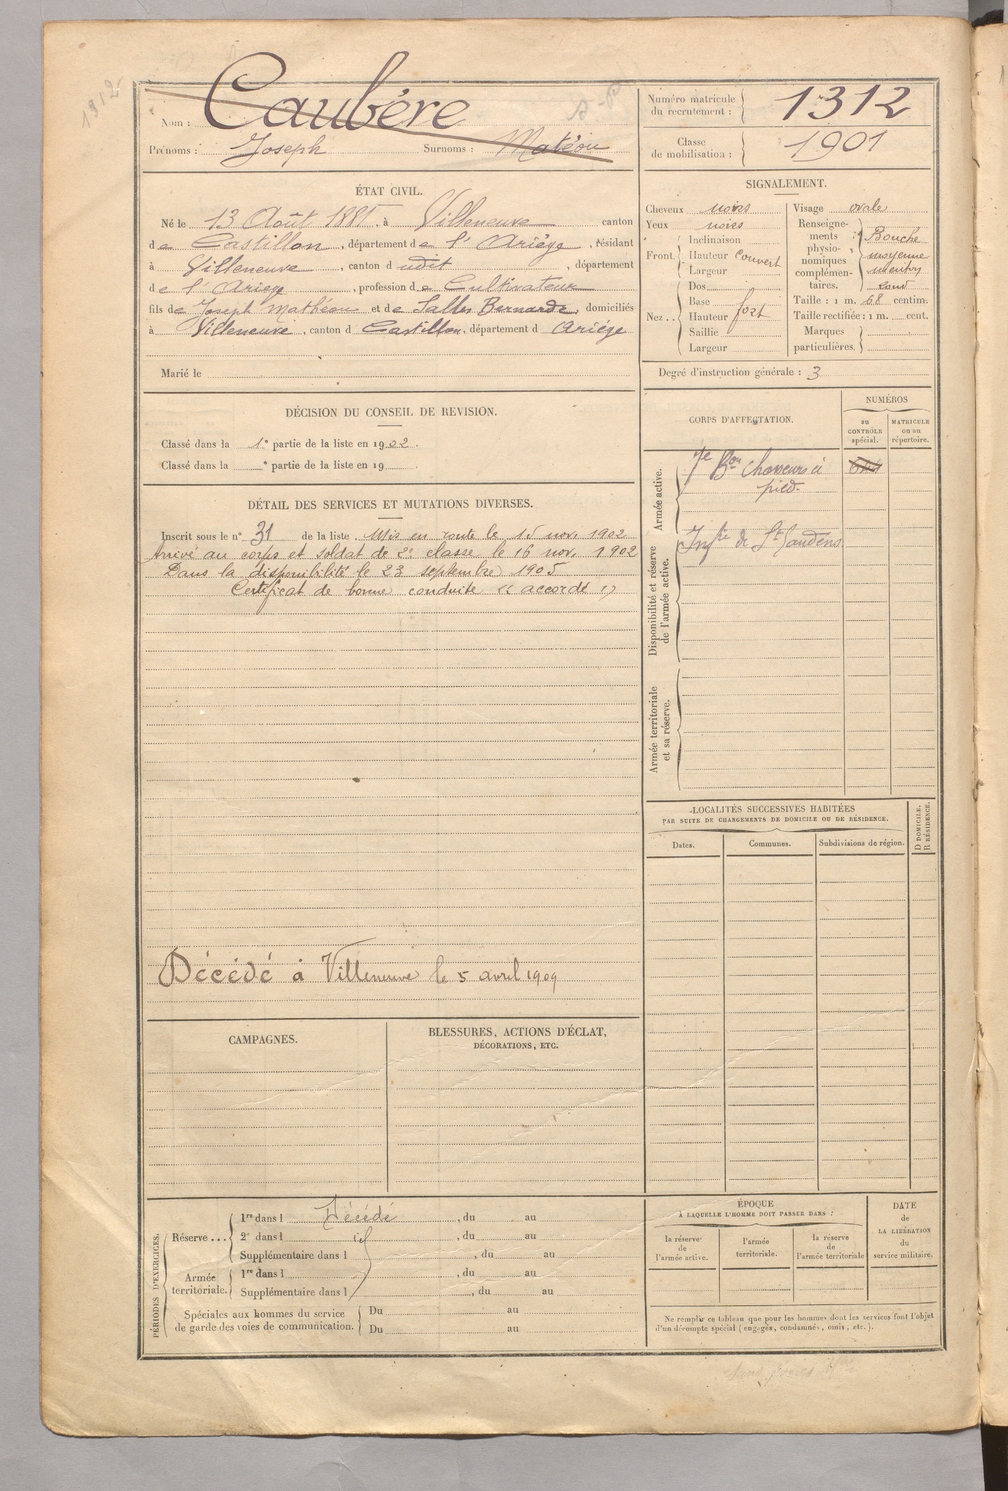 1312
Nom : Caubère
Prénoms : Joseph Surnoms : Matéou
Numéro matricule du recrutement : 1312
Classe de mobilisation : 1901
ÉTAT CIVIL.
Né le 13 Août 1881, à Villeneuve canton
de Castillon, département de l'Ariège, résidant
à Villeneuve, canton d udit, département
de l'Ariege, profession de Cultivateur
fils de Joseph Mathéou et de Salles Bernarde, domiciliés
à Villeneuve, canton d Castillon, département d Ariége
Marié le
SIGNALEMENT.
Cheveux noirs
Yeux noirs
Front. Inclinaison
Hauteur couvert
Largeur
Nez.. Dos
Base
Hauteur fort
Saillie
Largeur
Visage ovale
Renseignements physionomiques complémentaires. Bouche
moyenne
menton
rond
Taille : 1 m. 68 centim.
Taille rectifiée : 1 m. cent.
Marques particulières.
Degré d'instruction générale : 3
DÉCISION DU CONSEIL DE REVISION.
Classé dans la 1e partie de la liste en 1902.
Classé dans la e partie de la liste en 19
DÉTAIL DES SERVICES ET MUTATIONS DIVERSES.
Inscrit sous le n° 31 de la liste. Mis en route le 15 nov. 1902
Arrivé au corps et soldat de 2e classe le 16 nov. 1902
Dans la disponibilité le 23 septembre 1905
Certificat de bonne conduite « accordé »
Décédé à Villeneuve le 5 avril 1909
CORPS D'AFFECTATION.
NUMÉROS
au CONTRÔLE spécial.
MATRICULE ou au répertoire.
Armée active.
7e Bon Chasseurs à
pied.
Disponibilité et réserve de l'armée active.
Infie de St Gaudens
Armée territoriale et sa réserve.
LOCALITÉS SUCCESSIVES HABITÉES
PAR SUITE DE CHANGEMENTS DE DOMICILE OU DE RÉSIDENCE.
Dates. Communes. Subdivisions de région.
D DOMICILE.
R RÉSIDENCE.
CAMPAGNES.
BLESSURES, ACTIONS D'ÉCLAT,
DÉCORATIONS, ETC.
PÉRIODES D'EXERCICES.
Réserve... 1re dans l Décédé, du au
2e dans l id, du au
Supplémentaire dans l, du au
Armée territoriale. 1re dans l, du au
Supplémentaire dans l, du au
Spéciales aux hommes du service Du au
de garde des voies de communication. Du au
ÉPOQUE
À LAQUELLE L'HOMME DOIT PASSER DANS :
la réserve de l'armée active.
l'armée territoriale.
la réserve de l'armée territoriale
DATE
de
LA LIBÉRATION
du
service militaire.
Ne remplir ce tableau que pour les hommes dont les services font l'objet
d'un décompte spécial (engagés, condamnés, omis, etc.).